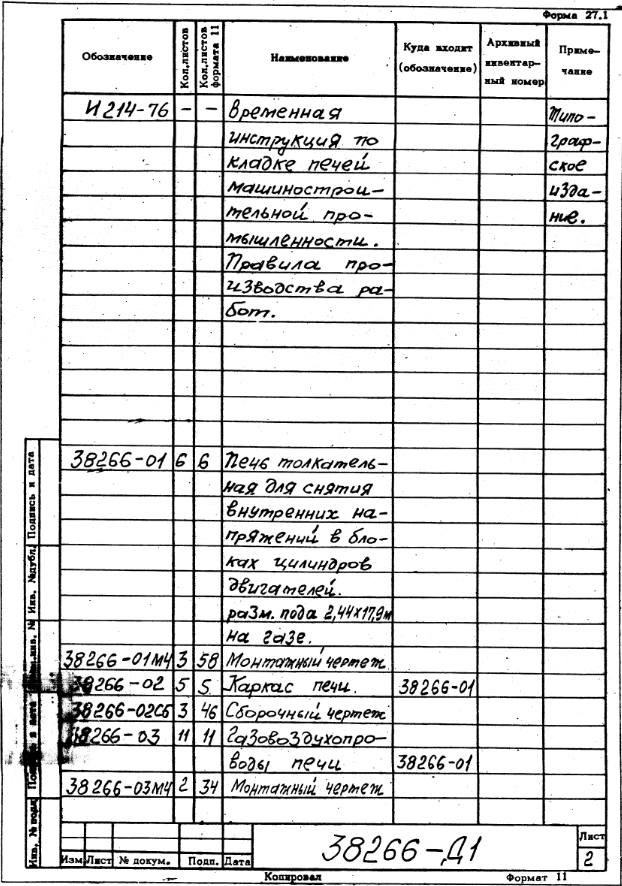 Форма 27.1
Обозначение Кол.листов Кол.листов формата 11 Наименование Куда входит (обозначение) Архивный инвентарный номер Примечание
И 214-76 – – Временная Типо-
инструкция по граф-
кладке печей ское
машинострои- изда-
тельной про- ние.
мышленности.
Правила про-
изводства ра-
бот.
38266-01 6 6 Печь толкатель-
ная для снятия
внутренних на-
пряжений в бло-
ках цилиндров
двигателей.
разм. пода 2,44х17,9м
на газе.
38266-01МЧ 3 58 Монтажный чертеж
38266-02 5 5 Каркас печи. 38266-01
38266-02СБ 3 46 Сборочный чертеж
38266-03 11 11 Газовоздухопро-
воды печи 38266-01
38266-03МЧ 2 34 Монтажный чертеж
Подпись и дата
Инв. №дубл.
инв. №
дата
Инв. № подл.
38266-Д1
Лист
2
Изм Лист № докум. Подп. Дата
Копировал Формат 11